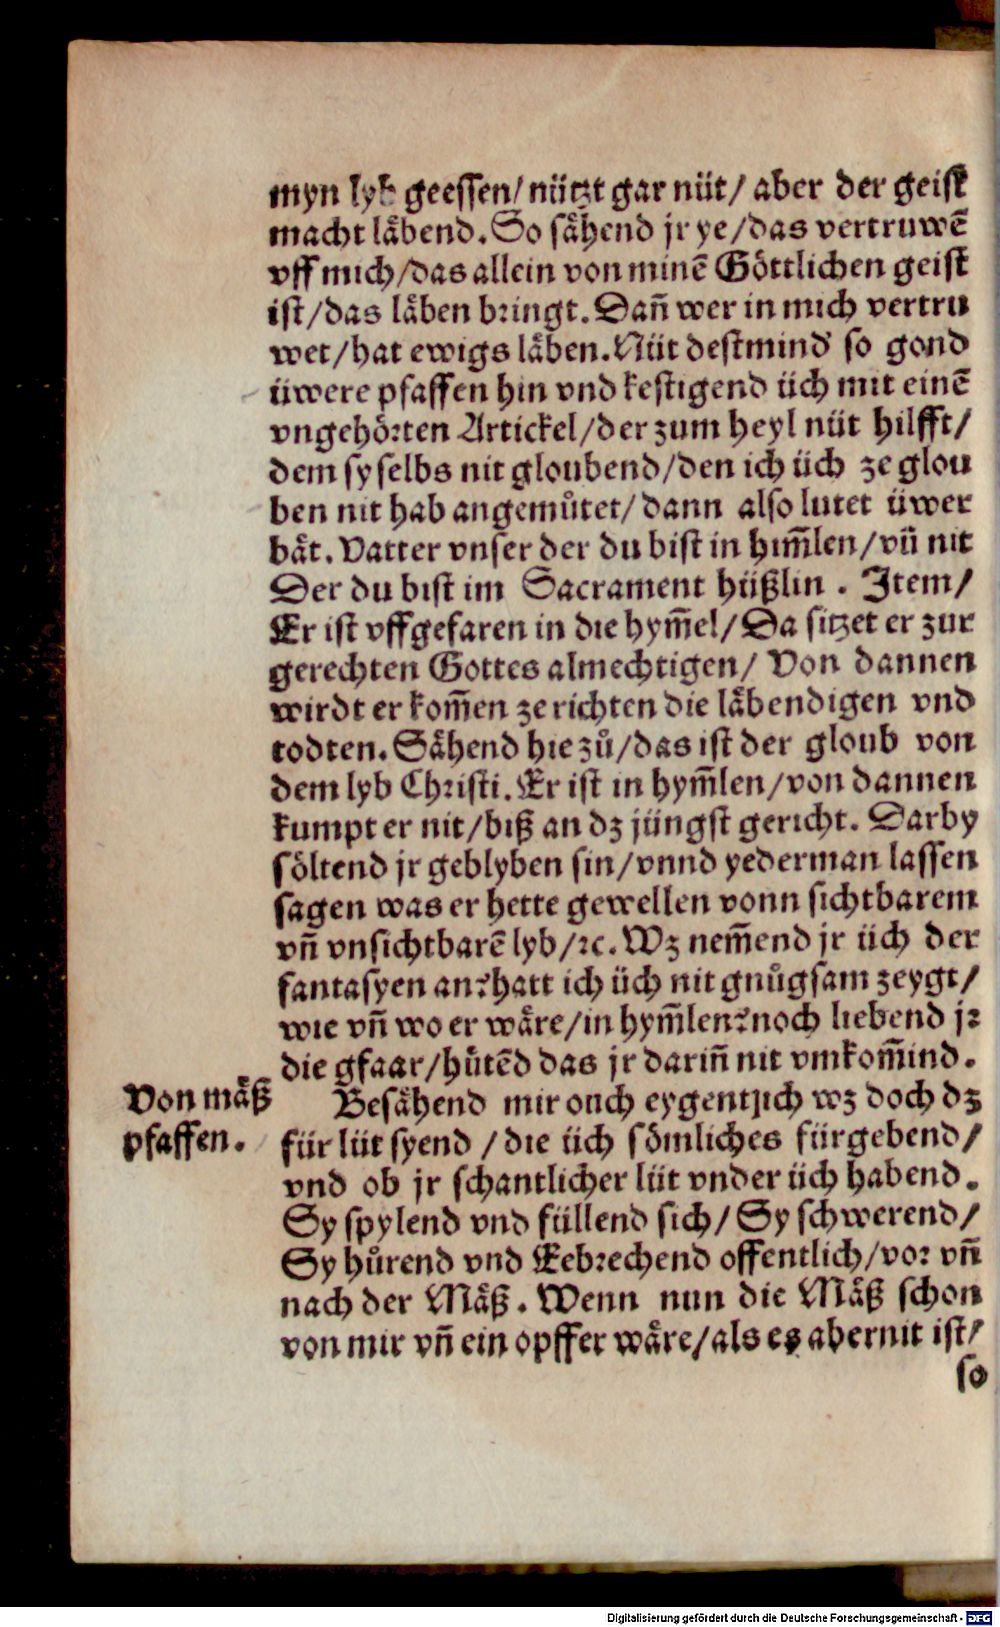 myn lyb geessen/ nützt gar nüt/ aber der geist
macht läbend. So sähend jr ye/das vertruwē
vff mich/das allein von minē Göttlichen geist
ist/das läben bringt. Dañ wer in mich vertru
wet/hat ewigs läben. Nüt destmind' so gond
üwere pfaffen hin vnd kestigend üch mit einē
vngehörten Artickel/der zum heyl nüt hilfft/
dem sy selbs nit gloubend/den ich üch ze glou
ben nit hab angemůtet/ dann also lutet üwer
bät. Vatter vnser der du bist in him̄len/vñ nit
Der du bist im Sacrament hüßlin . Item/
Er ist vffgefaren in die hym̄el/Da sitzet er zur
gerechten Gottes almechtigen/ Von dannen
wirdt er kom̄en ze richten die läbendigen vnd
todten. Sähend hie zů/das ist der gloub von
dem lyb Christi. Er ist in hym̄len/von dannen
kumpt er nit/biß an dz jüngst gericht. Darby
söltend jr geblyben sin/vnnd yederman lassen
sagen was er hette gewellen vonn sichtbarem
vñ vnsichtbarē lyb/ꝛc. Wz nem̄end jr üch der
fantasyen an? hatt ich üch nit gnůgsam zeygt/
wie vñ wo er wäre/in hym̄len? noch liebend jr
die gfaar/hütēd das jr dariñ nit vmkom̄ind.
Von mäß
pfaffen.
Besähend mir ouch eygentlich wz doch dz
für lüt syend /die üch sömliches fürgebend/
vnd ob jr schantlicher lüt vnder üch habend.
Sy spylend vnd füllend sich/ Sy schwerend/
Sy hůrend vnd Eebrechend offentlich/vor vñ
nach der Mäß. Wenn nun die Mäß schon
von mir vñ ein opffer wäre/als es aber nit ist/
so
Digitalisierung gefördert durch die Deutsche Forschungsgemeinschaft - DFG